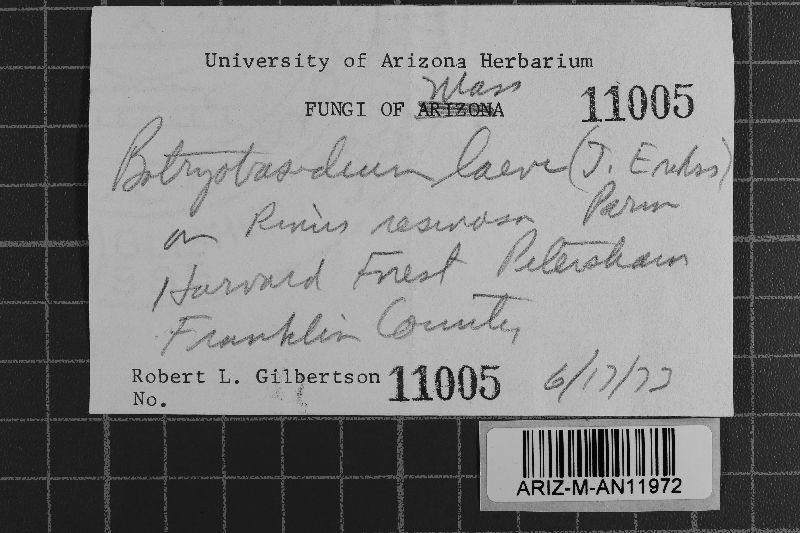 University of Arizona Herbarium
Mass
FUNGI OF ARIZONA 11005
Botryobasidium laeve (J. Erikss)
on Pinus resinosa Parm
Harvard Forest Petersham
Franklin County
Robert L. Gilbertson 11005 6/17/73
No.
ARIZ-M-AN11972